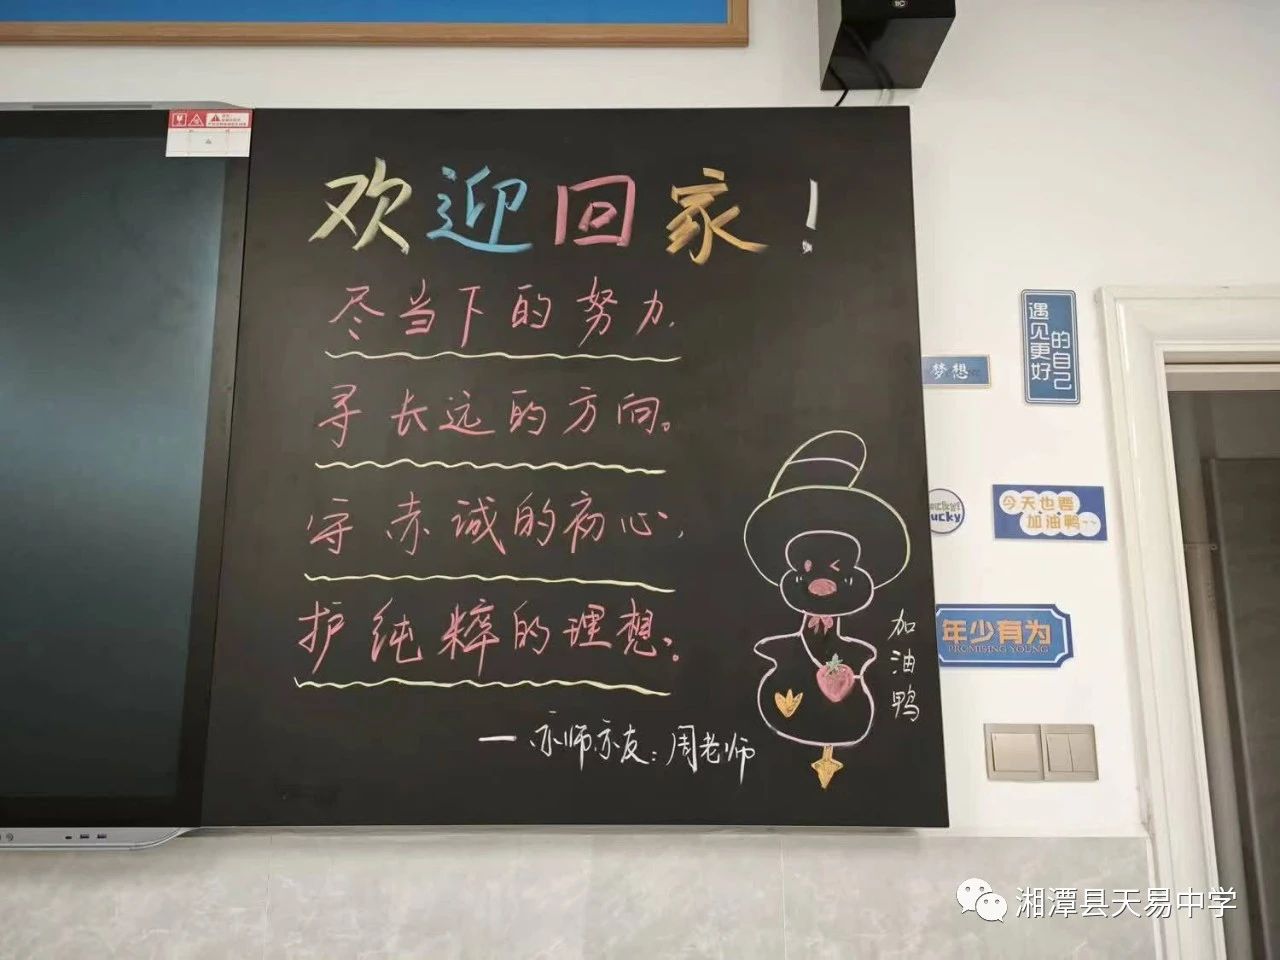 欢迎回家！
尽当下的努力.
寻长远的方向。
守赤诚的初心,
护纯粹的理想。
一亦师亦友：周老师
加油鸭
梦想
遇见更好
的自己
ucky
今天也要
加油鸭~~
年少有为
PROMISING YOUNG
湘潭县天易中学